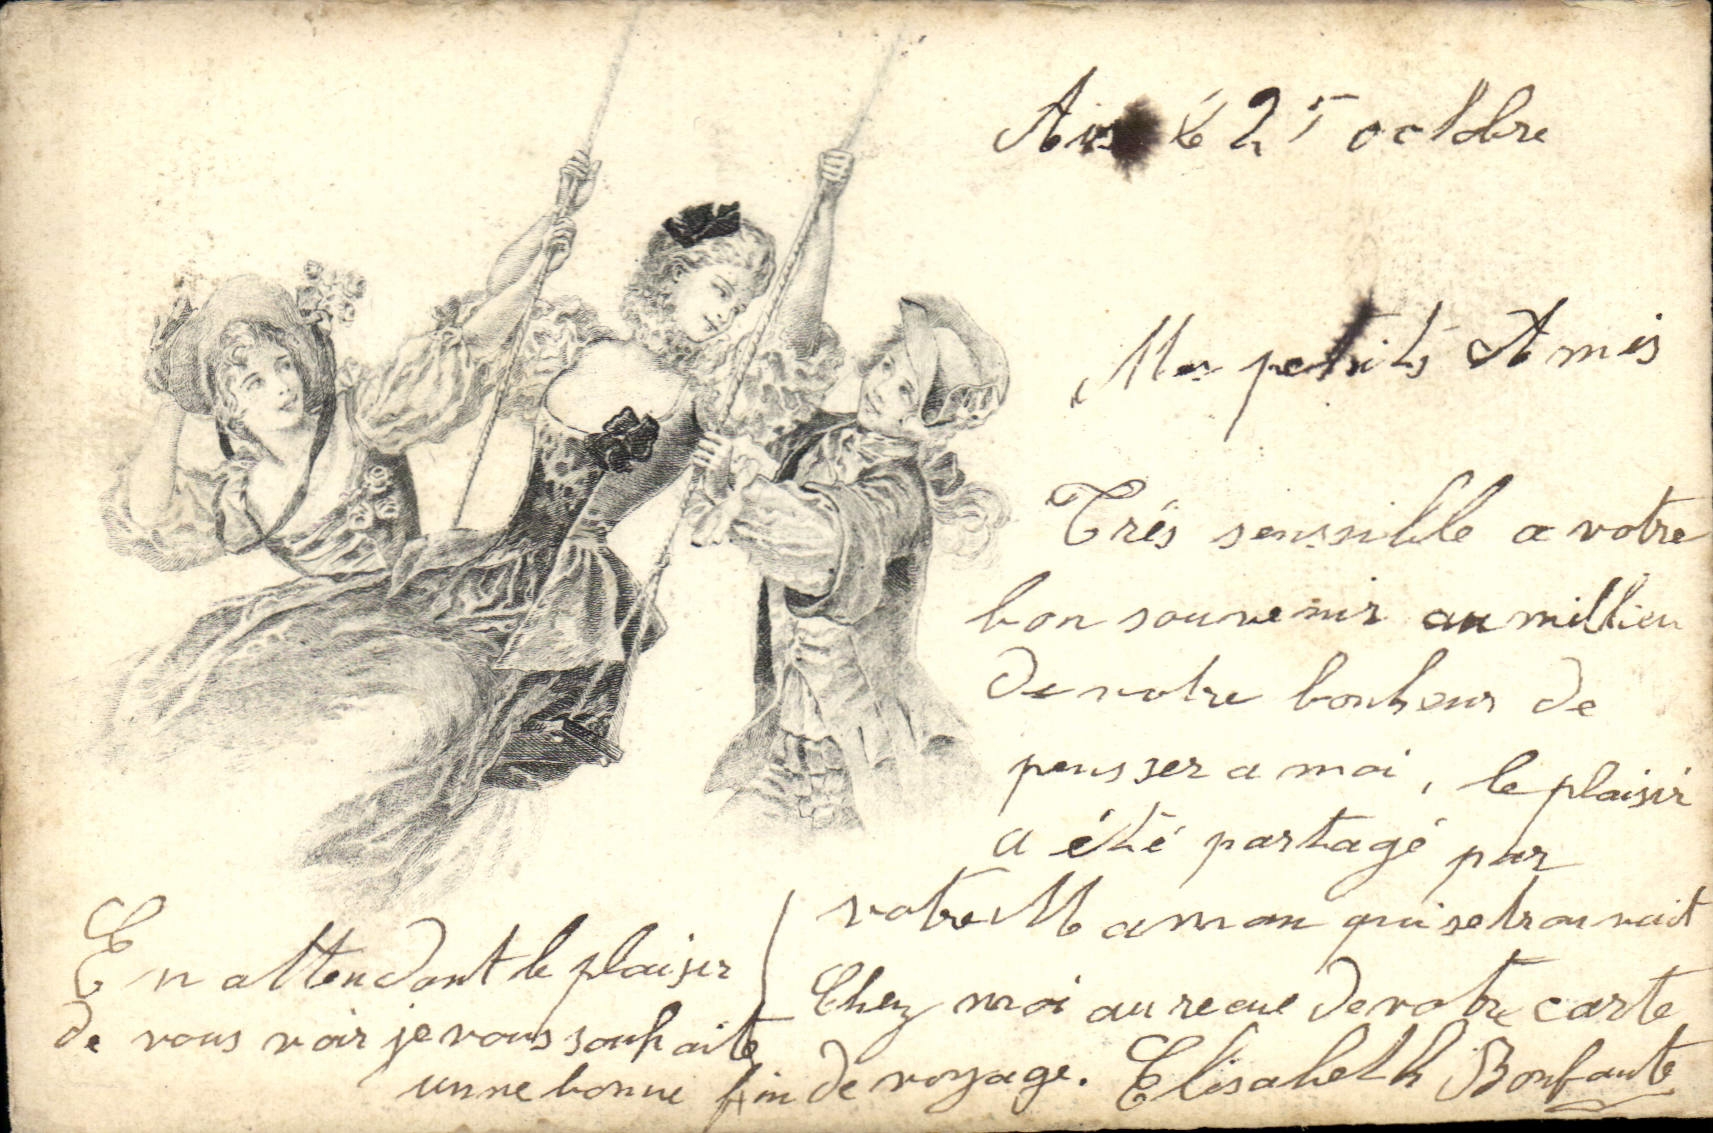 le 25 octobre
Mes petits Amis
Trés senssible a votre
bon souvenir au millieu
de votre bonheur de
pensser a moi, le plaisir
a été partagé par
votre Maman qui se trouvait
Chez moi au recue de votre carte
En attendant le plaisir
de vous voir je vous souhaite
unne bonne fin de voyage. Elisabeth Bonfante